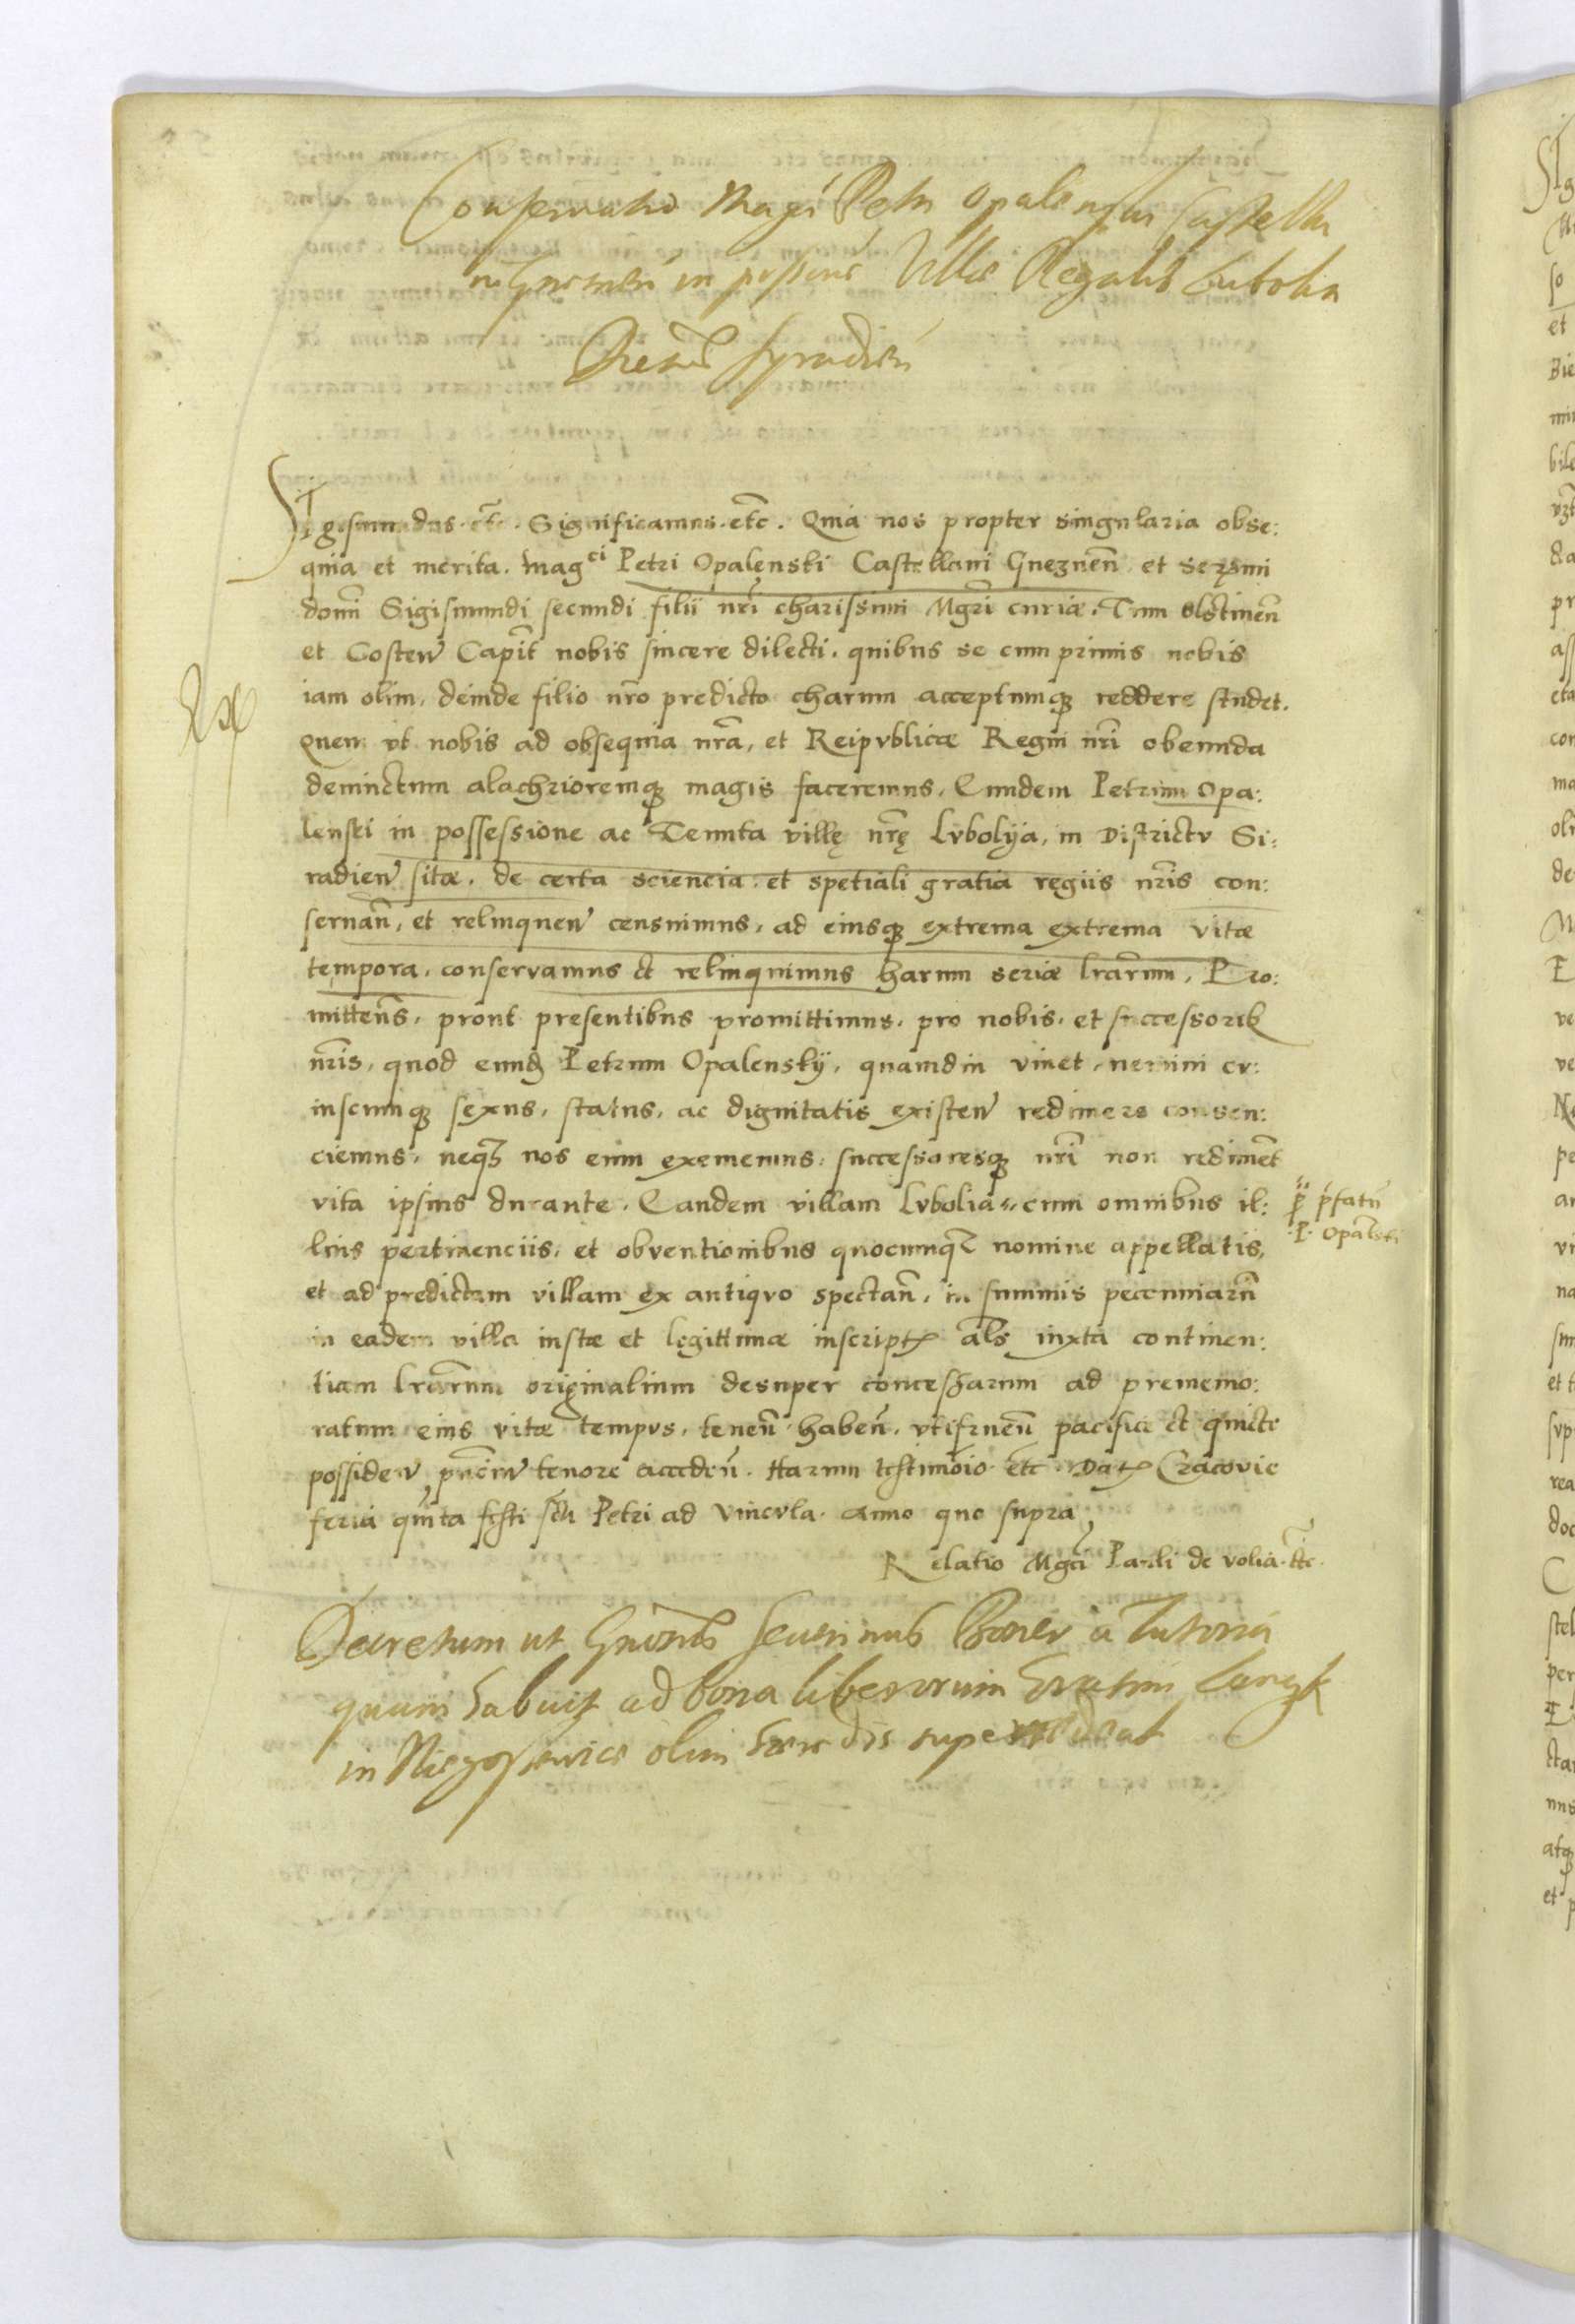 Conservatio Magci Petri Opalensky Castella
ni Gnesnen in possessione Villae Regalis Lubolia
Siradien
Sigismundus. etc. Significamus. etc. Quia nos propter singularia obse:
quia et merita. Magci Petri Opalenski Castellani Gneznen et serenmi
domi Sigismundi secundi filii nri charissimi Mgri curiæ. Tum Olstinen
et Costen Capit nobis sincere dilecti. quibus se cum primis nobis
iam olim, deinde filio nro predicto charum acceptumque reddere studet.
Quem vt nobis ad obsequia nra, et Reipvblicæ Regni nri obeunda
deuinctum alachrioremque magis faceremus. Eundem Petrum Opa:
lenski in possessione ac Tenuta villę nrę Lvbolija, in Districtv Si:
radien sitæ. de certa sciencia. et spetiali gratia regiis nris con:
seruan, et relinquen censuimus, ad eiusque extrema extrema vitæ
tempora. conservamus et relinquimus harum seriæ lrarum. Pro:
mittens. prout presentibus promittimus. pro nobis. et successorib
nris, quod eund Petrum Opalenskij, quamdiu viuet, nemini cv:
iuscunque sexus, status, ac dignitatis existen redimere consen:
ciemus, neque nos eum exememus, successoresque nri non rediment
vita ipsius durante. Eandem villam Lvbolia cum omnibus il: per prefatu
lius pertinenciis, et obventionibus quocumque nomine appellatis, P. Opalski
et ad predictam villam ex antiqvo spectan, in summis pecunniaru
in eadem villa iustæ et legittimæ inscript als iuxta continen:
tiam lrarum originalium desuper concessarum ad prememo:
ratum eius vitæ tempvs, tenen haben, vtifruen pacifice et quiete
possiden, pntium tenore acceden. Harum testimoio etc. Dat Cracovie
feria quinta festi scti Petri ad Vincvla. anno quo supra,
Relatio Mgci Pauli de volia. etc.
Decretum ut Gnosus Seuerinus Boner a Tutoria
quam habuit ad bona liberorum Erasmi
in olim haeredis supersedeat